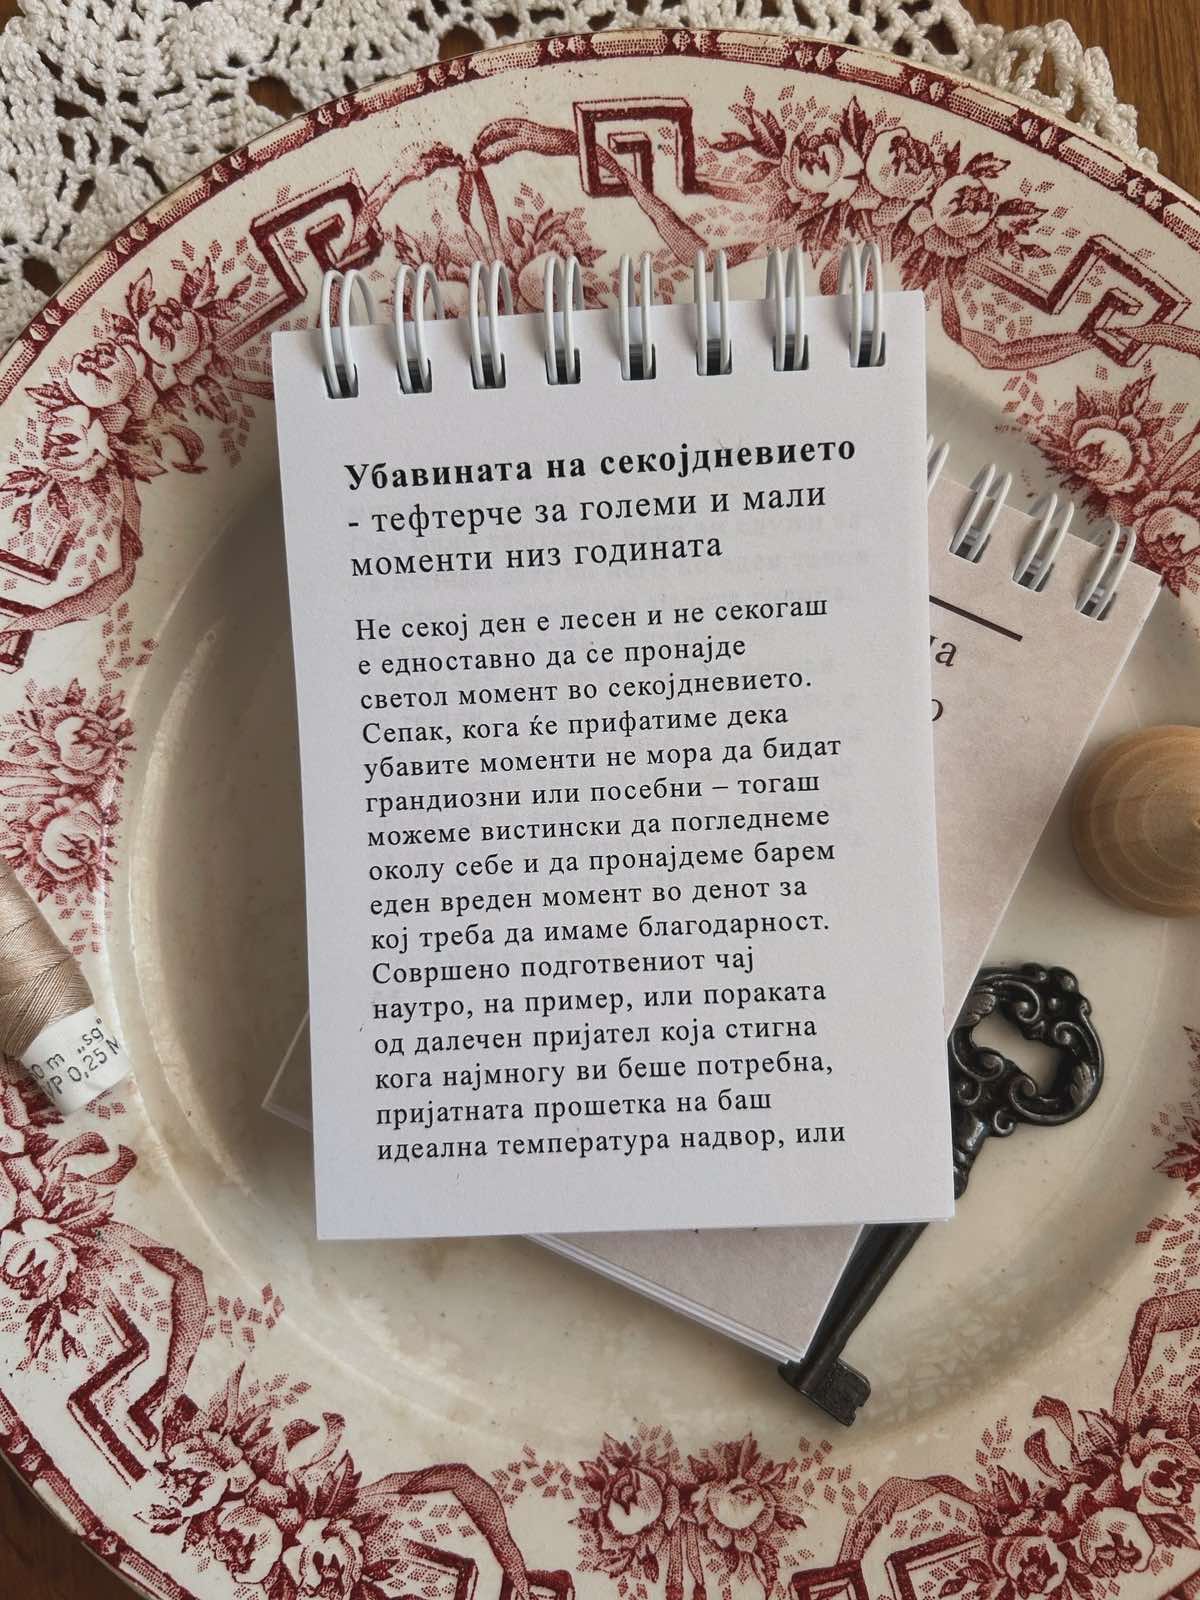 Убавината на секојдневието
- тефтерче за големи и мали
моменти низ годината
Не секој ден е лесен и не секогаш
е едноставно да се пронајде
светол момент во секојдневието.
Сепак, кога ќе прифатиме дека
убавите моменти не мора да бидат
грандиозни или посебни – тогаш
можеме вистински да погледнеме
околу себе и да пронајдеме барем
еден вреден момент во денот за
кој треба да имаме благодарност.
Совршено подготвениот чај
наутро, на пример, или пораката
од далечен пријател која стигна
кога најмногу ви беше потребна,
пријатната прошетка на баш
идеална температура надвор, или
m „sg“
0,25